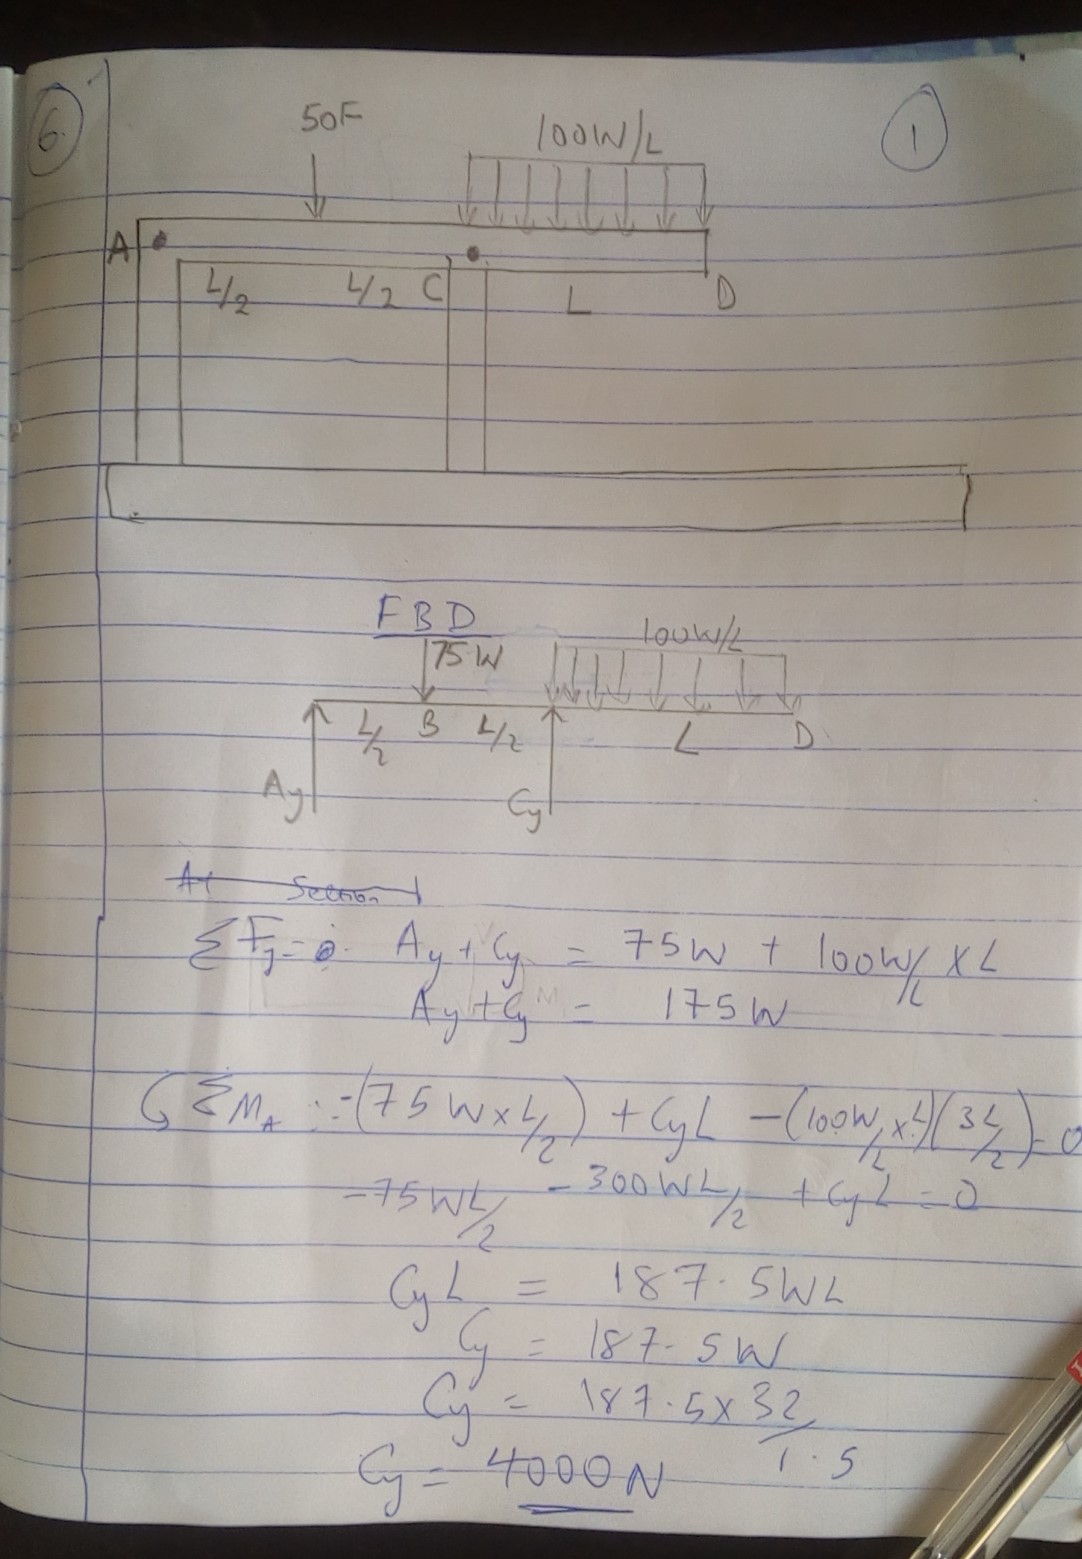 6.
1
50F
100W/L
A
L/2 L/2 C L D
FBD
75W
100W/L
L/2 B L/2 L D
Ay Cy
ΣFy=0. Ay + Cy = 75W + 100W/L X L
Ay + Cy = 175W
ΣMA : -(75W x L/2) + CyL - (100W/L x L)(3L/2) = 0
-75WL/2 - 300WL/2 + CyL = 0
CyL = 187.5WL
Cy = 187.5W
Cy = 187.5 x 32/1.5
Cy = 4000N